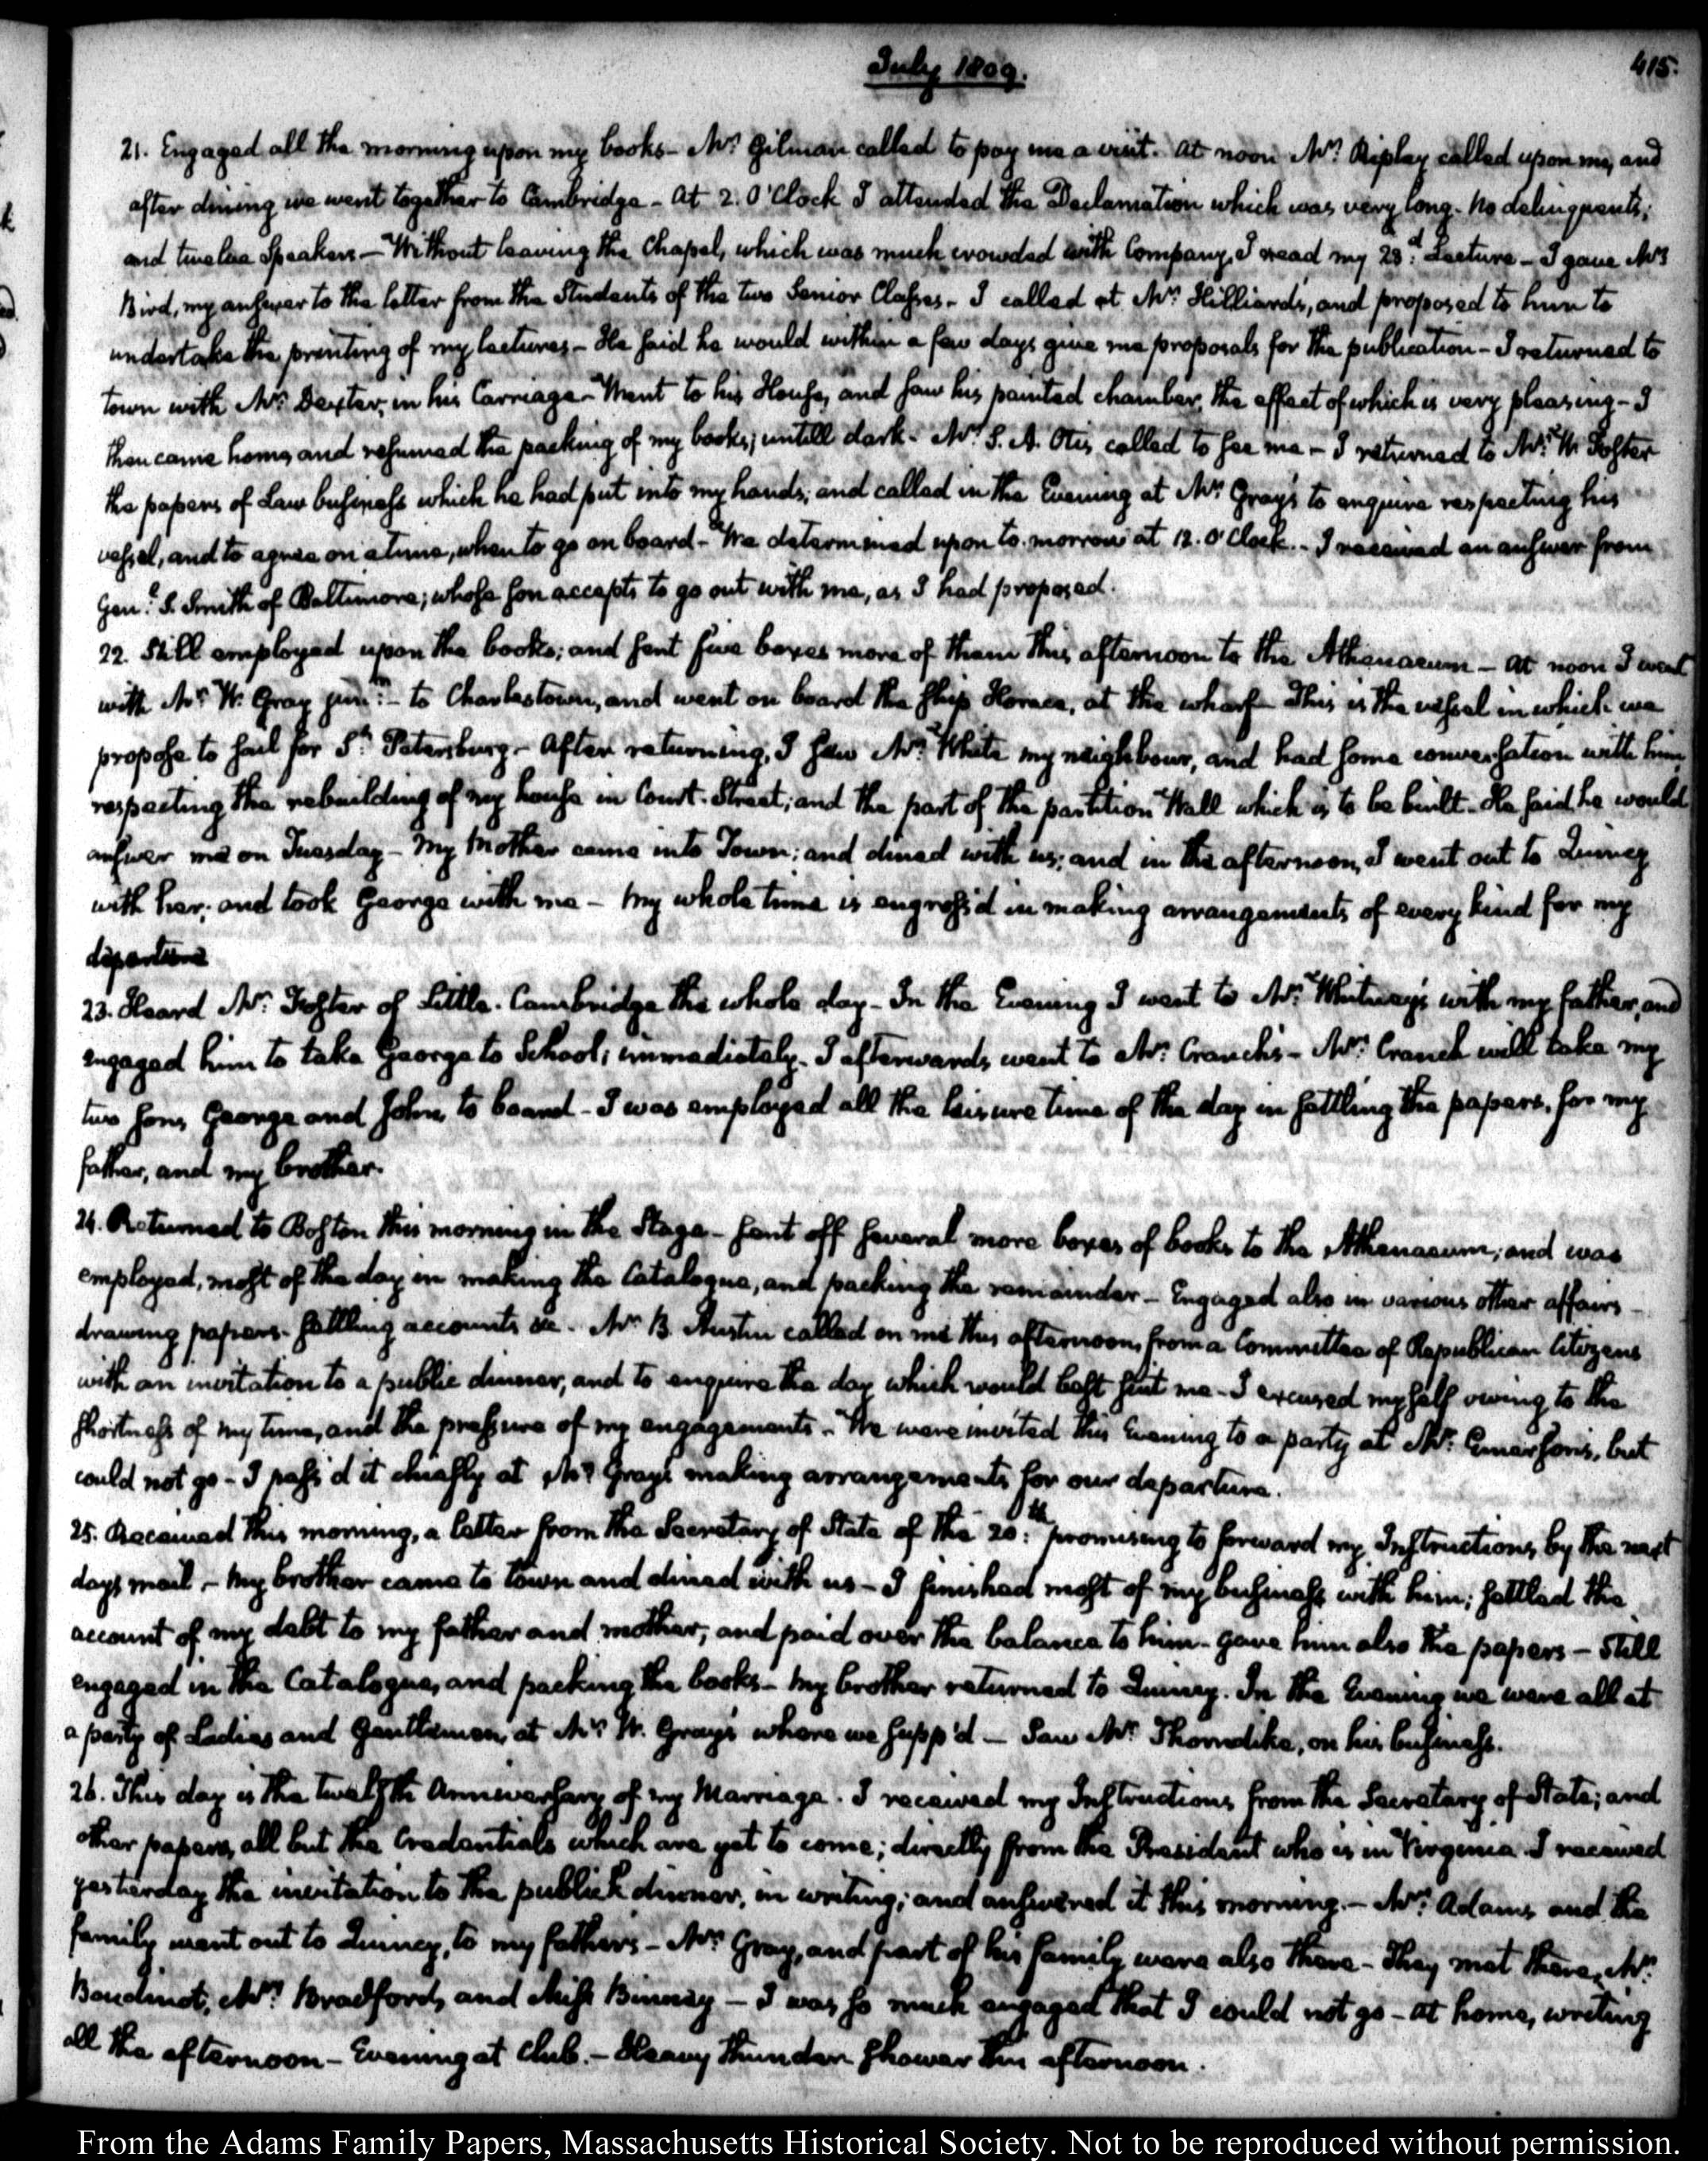 July 1809.
415.
21. Engaged all the morning upon my books— Mr. Gilman called to pay me a visit. At noon Mr. Ripley called upon me, and
after dining we went together to Cambridge— At 2. O'Clock I attended the Declamation which was very long. No delinquents;
and twelve Speakers— Without leaving the Chapel, which was much crowded with Company, I read my 23d. Lecture— I gave Mr.
Bird, my answer to the letter from the Students of the two Senior Classes— I called at Mr. Hilliard's, and proposed to him to
undertake the printing of my lectures— He said he would within a few days give me proposals for the publication— I returned to
town with Mr. Dexter, in his Carriage— Went to his House, and saw his painted chamber, the effect of which is very pleasing— I
then came home, and resumed the packing of my books, untill dark— Mr. S. A. Otis, called to see me— I returned to Mr. W. Foster
the papers of Law business which he had put into my hands; and called in the Evening at Mr. Gray's to enquire respecting his
vessel, and to agree on a time, when to go on board— We determined upon to-morrow at 12. O'Clock.— I received an answer from
Genl. S. Smith of Baltimore; whose son accepts to go out with me, as I had proposed.
22. Still employed upon the books; and sent five boxes more of them this afternoon to the Athenaeum— At noon I went
with Mr. W. Gray junr.— to Charlestown, and went on board the ship Horace, at the wharf— This is the vessel in which we
propose to sail for St. Petersburg— After returning, I saw Mr. White my neighbour, and had some conversation with him
respecting the rebuilding of my house in Court-Street; and the part of the partition Wall which is to be built— He said he would
answer me on Tuesday— My Mother came into Town; and dined with us; and in the afternoon, I went out to Quincy
with her; and took George with me— My whole time is engross'd in making arrangements of every kind for my
departure
23. Heard Mr. Foster of Little-Cambridge the whole day— In the Evening I went to Mr. Whitney's with my father, and
engaged him to take George to School; immediately. I afterwards went to Mr. Cranch's— Mrs. Cranch will take my
two sons, George and John, to board— I was employed all the leisure time of the day in settling the papers, for my
father, and my brother.
24. Returned to Boston this morning in the Stage— sent off several more boxes of books to the Athenaeum; and was
employed, most of the day in making the Catalogue, and packing the remainder— Engaged also in various other affairs—
drawing papers— settling accounts &c— Mr. B. Austin called on me this afternoon, from a Committee of Republican Citizens
with an invitation to a public dinner, and to enquire the day which would best suit me— I excused myself owing to the
shortness of my time, and the pressure of my engagements— We were invited this Evening to a party at Mr. Emerson's, but
could not go— I pass'd it chiefly at Mr. Gray's making arrangements for our departure.
25. Received this morning, a letter from the Secretary of State of the 20th: promising to forward my Instructions, by the next
days mail— My brother came to town and dined with us— I finished most of my business with him; settled the
account of my debt to my father and mother, and paid over the balance to him— gave him also the papers— Still
engaged in the Catalogue, and packing the books— My brother returned to Quincy. In the Evening we were all at
a party of Ladies and Gentlemen, at Mr. W. Gray's where we supp'd— Saw Mr. Thorndike, on his business.
26. This day is the twelfth Anniversary of my Marriage. I received my Instructions from the Secretary of State; and
other papers, all but the Credentials which are yet to come; directly from the President who is in Virginia. I received
yesterday the invitation to the publick dinner, in writing; and answered it this morning.— Mrs. Adams and the
family went out to Quincy, to my father's— Mr. Gray, and part of his family were also there— They met there, Mr.
Boudinot, Mrs. Bradford, and Miss Binney— I was so much engaged that I could not go— At home, writing
all the afternoon— Evening at Club.— Heavy thunder shower this afternoon.
From the Adams Family Papers, Massachusetts Historical Society. Not to be reproduced without permission.